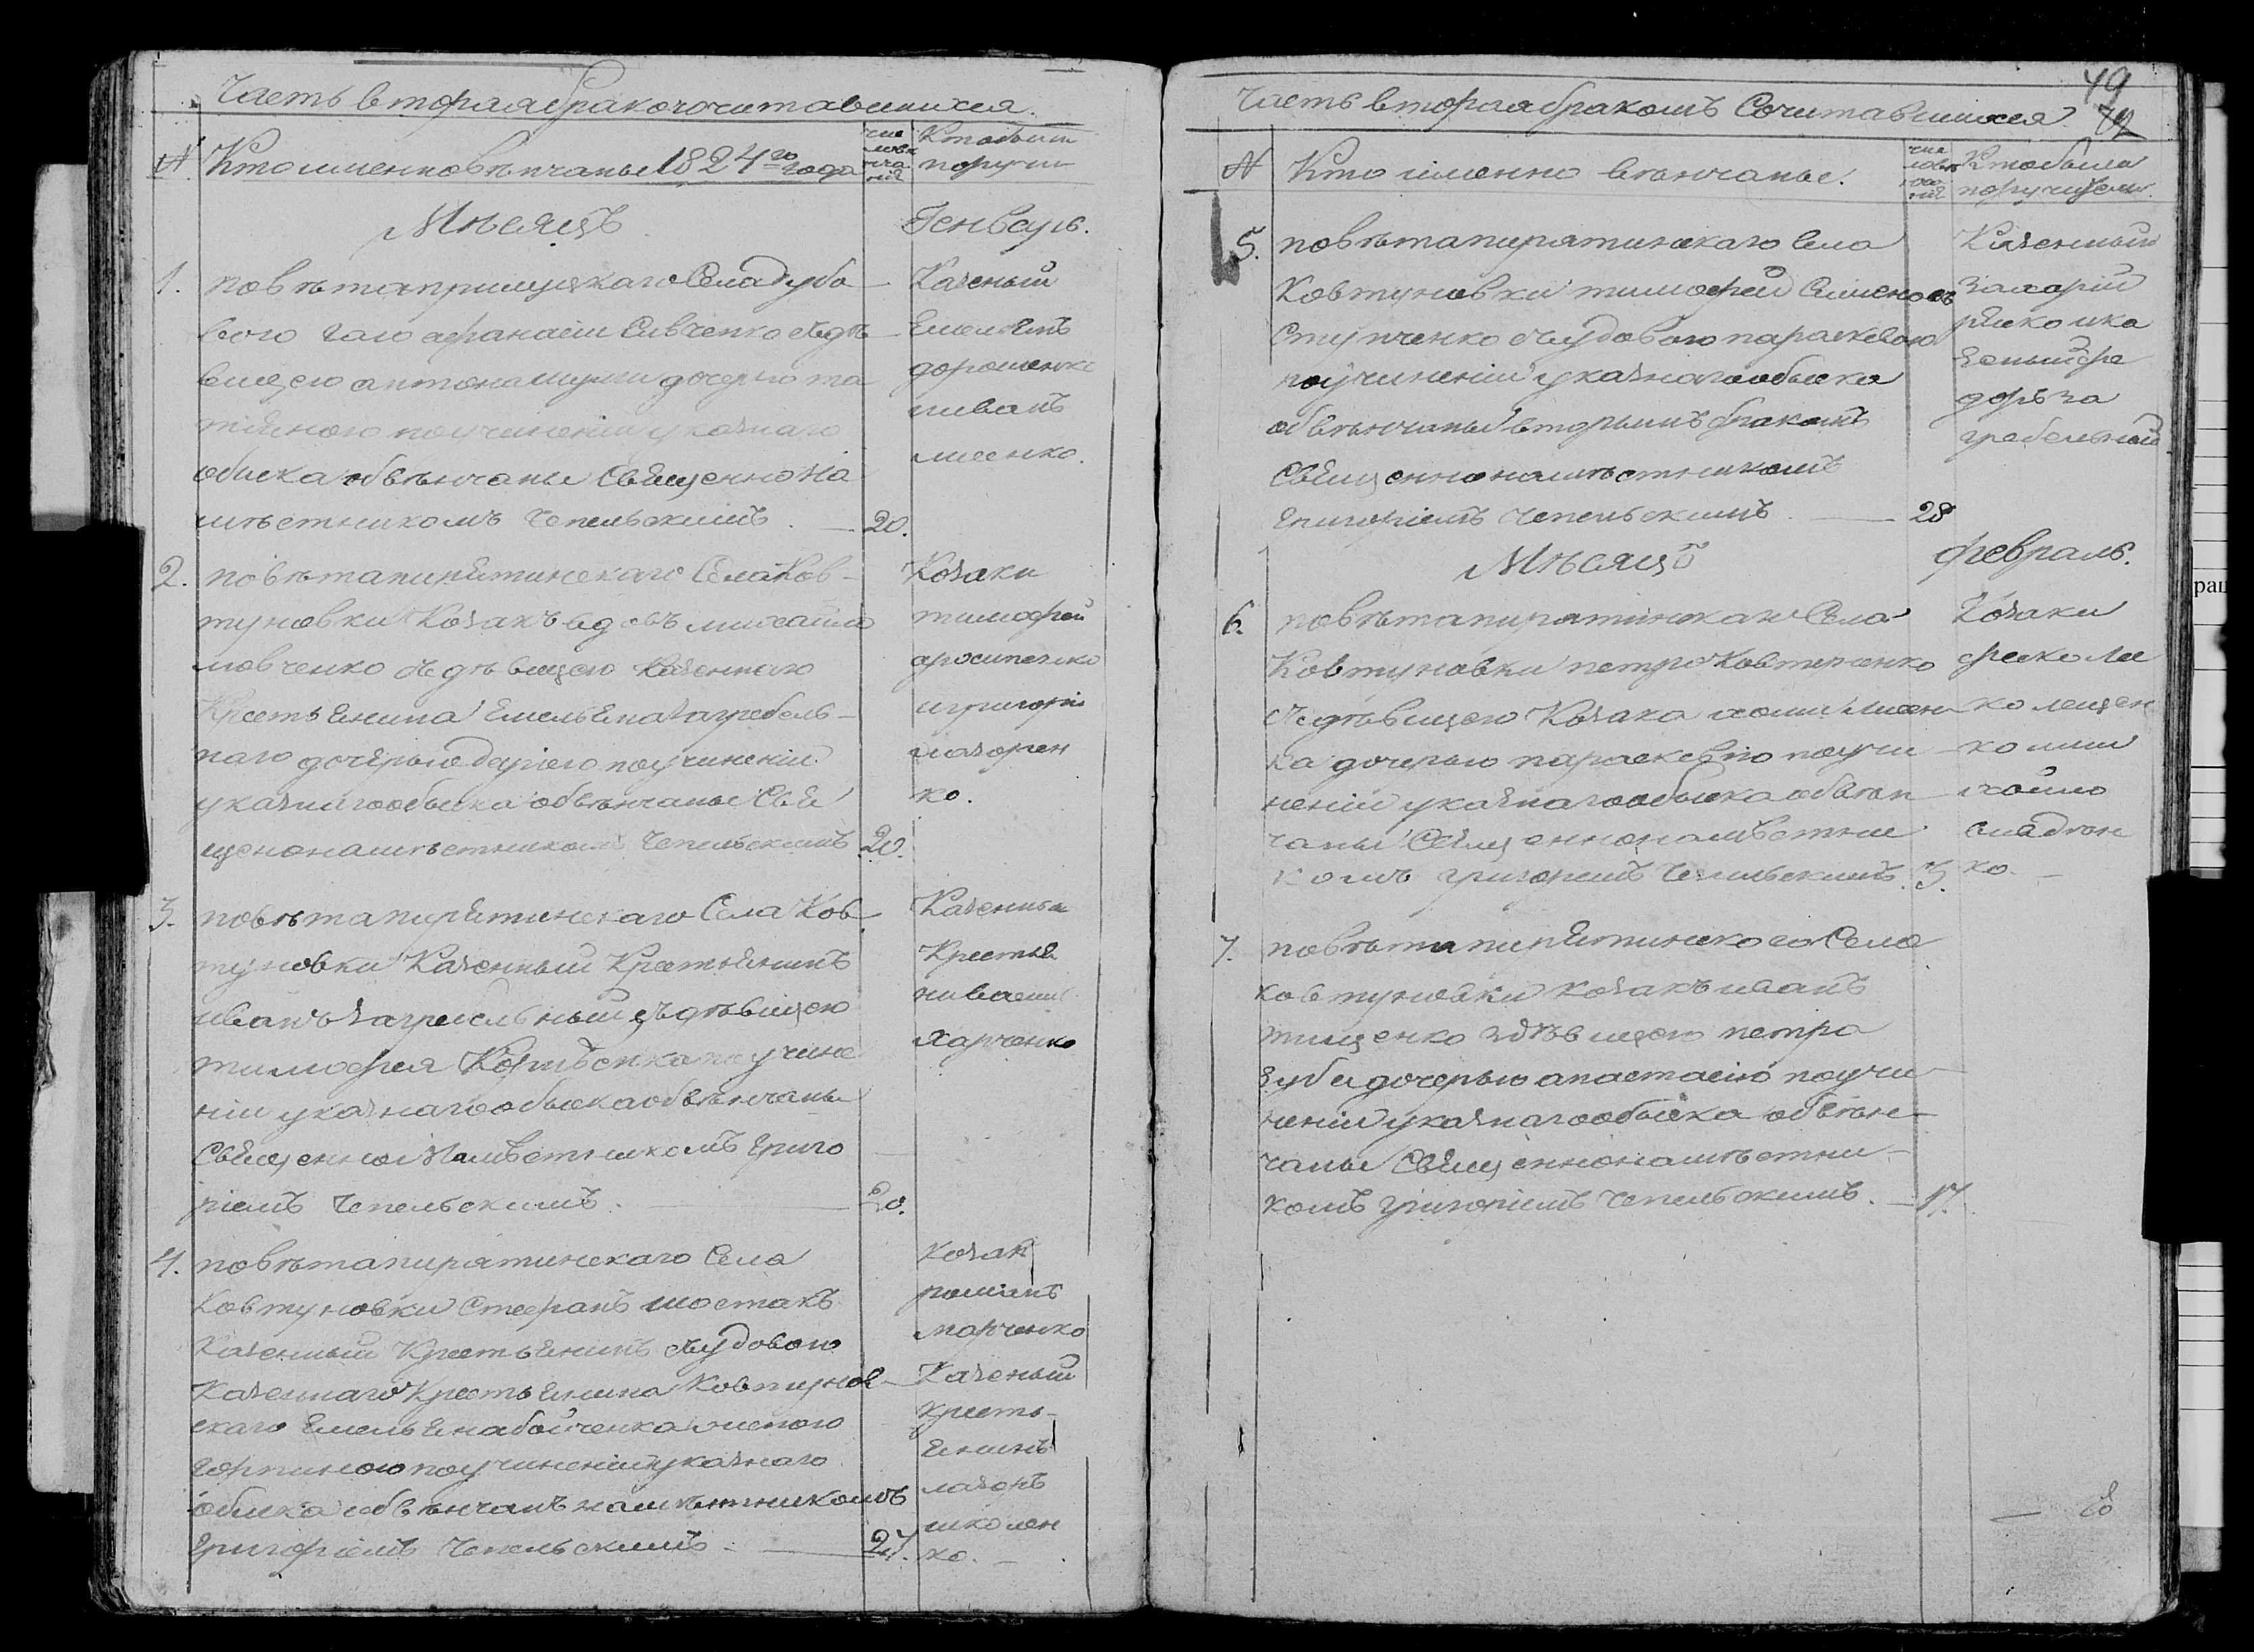 Часть вторая бракочочитавшихся.
№ Кто именно вѣнчаны 1824го года
чис ловѣ нча нія
Кто были поручи
Мѣсяцъ Генварь.
1. повѣта прилуцкаго Села дубо
вого гаю афанасіи Сивченко здѣ
вицею антона дочерью та
тіяною поучиненіи указнаго
обиска обвѣнчаны Священно на
мѣстникомъ Чепельскимъ. 20.
Казеный
Емельянъ
дорошенко
ииванъ
лисенко.
2. повѣта пирятинскаго Села Ков
туновки Козакъ вдовъ михаило
мовченко здѣвицею казенного
Крестьянина Емельяна Загребель
наго дочерью поучиненіи
указнагообыска обвѣнчаны Свя
щенонамѣстникомъ Чепельскимъ 20.
Козаки
тимофей
иригорій
лазорен
ко.
3. повѣта пирятинскаго Села Ков
туновки Казенный Крестьянинъ
иванъ Загребельный здѣвицею
тимофея поучине
ніи указнагообыскаобвѣнчаны
Священно Намѣстникомъ Григо
ріемъ Чепельскимъ. 20.
Казенныи
Крестья
Харченко
4. повѣта пирятинскаго Села
Ковтуновки Стефанъ шостакъ
Казенный Крестьянинъ зсудовою
Казеннаго Крестьянина Ковтунов
скаго Емельяна бойченка женою
Горпиною поучиненіи указнаго
обиска обвѣнчанъ намѣстникомъ
Григоріемъ Чепельскимъ. 27.
Козак
романъ
марченко
Казеный
кресть
янинъ
лазоръ
миколен
ко.
49
Часть вторая бракомъ Сочитавшихся.
№ Кто именно вѣнчаны.
чис ловѣ нча нія
Кто были поручители.
5. повѣта пирятинскаго Села
Ковтуновки тимофей Семеновъ
Ступченко зсудовою параскевою
поучиненіи указнагообыска
обвѣнчаны вторымъ бракомъ
Священнонамѣстникомъ
Григоріемъ Чепельскимъ. 28
Казенный
Захарій
дорѣ за
гребельный
Мѣсяцъ февраль.
6. повѣта пирятинскаго Села
Ковтуновки петро Ковтуненко
здѣвицею Козака хоми лисен
ка дочерью параскевію поучи
неніи указнагообыска обвѣн
чаны Священнонамѣстни
комъ Григоріемъ Чепельскимъ. 3.
Козаки
ко лещен
ко ими
хайло
ко.
7. повѣта пирятинского Села
ковтуновки козакъ иванъ
тищенко здѣвицею петра
Зуба дочерью анастасію поучи
неніи указнагообыска обвѣн
чаны Священнонамѣстни
комъ Григоріемъ Чепельскимъ. 17.